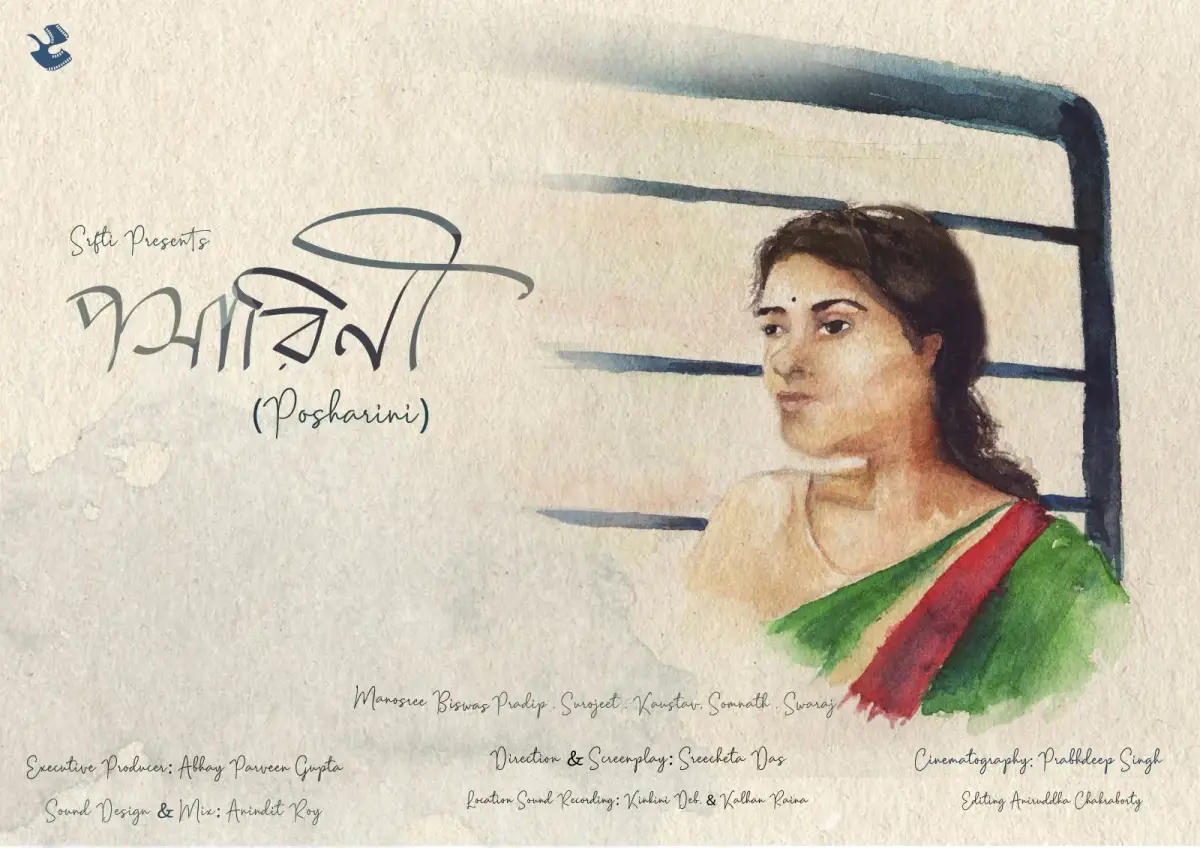 Srfti Presents
পসারিনী
(Posharini)
Manosree Biswas Pradip . Surojeet . Kaustav, Somnath . Swaraj
Executive Producer: Abhay Parveen Gupta
Direction & Screenplay: Sreecheta Das
Cinematography: Prabhdeep Singh
Sound Design & Mix: Anindit Roy
Location Sound Recording: Kinkini Deb. & Kalhan Raina
Editing Aniruddha Chakraborty